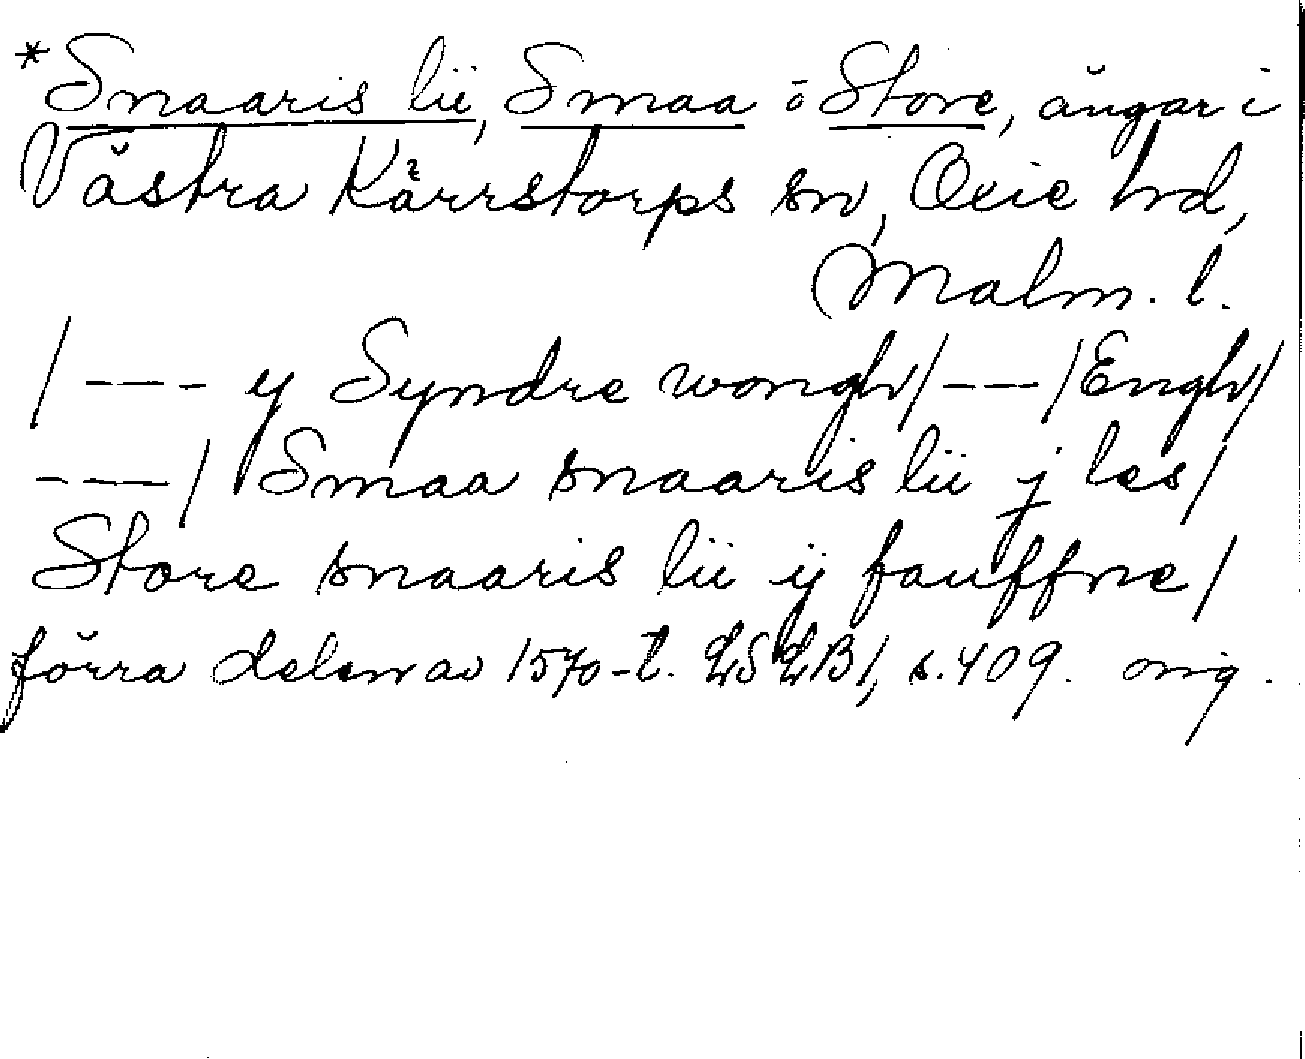 *Snaaris lü, Smaa o Store, ängar i
Västra Kärrstorps sn, Oxie hd,
Malm. l.
/ --- y Syndre wongh/ --- /Engh/
--- / Smaa snaaris lü j les /
Store snaaris lü ij fauffne /
förra delen av 1570-t. LSLB 1, s. 409. orig.